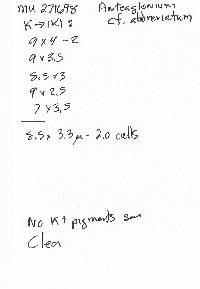 MU 271698 Anteaglonium
cf. abbreviatum
K → IKI:
9 x 4 - 2
9 x 3.5
8.5 x 3
9 x 2.5
7 x 3.5
8.5 x 3.3 µ - 2.0 cells
No K+ pigments
Clear